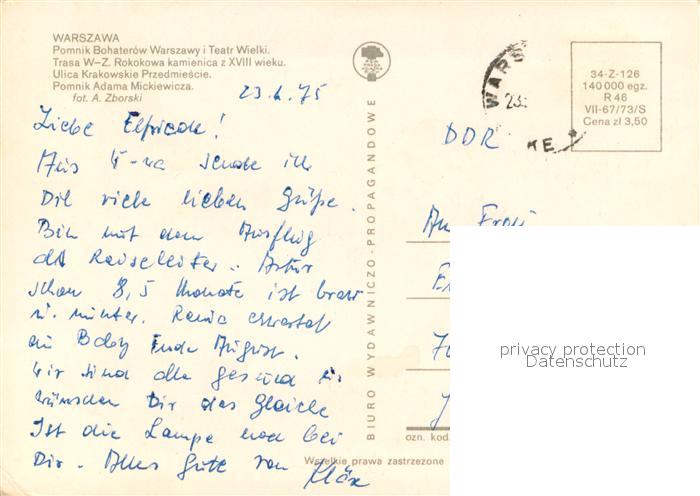 WARSZAWA
Pomnik Bohaterów Warszawy i Teatr Wielki.
Trasa W–Z. Rokokowa kamienica z XVIII wieku.
Ulica Krakowskie Przedmieście.
Pomnik Adama Mickiewicza.
fot. A. Zborski
34-Z-126
140 000 egz.
R 46
VII-67/73/S
Cena zł 3,50
WARS
23.
75
Liebe Elfriede!
Aus sende ich
Dir viele lieben Grüße.
Bin mit dem Ausflug
als Reiseleiter.
schon 8,5 Monate ist brav
u. munter. erwartet
ein Baby Ende August.
Wir sind alle gesund u.
wünschen Dir das Gleiche
Ist die Lampe noch bei
Dir. Alles Gute von
DDR
An Frau
BIURO WYDAWNICZO-PROPAGANDOWE
privacy protection
Datenschutz
ozn. kod.
Wszelkie prawa zastrzeżone